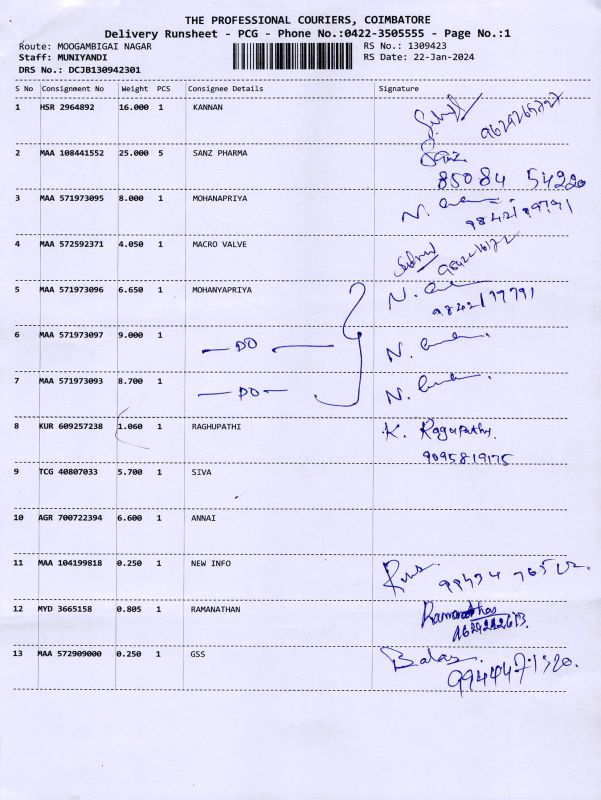 THE PROFESSIONAL COURIERS, COIMBATORE
Delivery Runsheet - PCG - Phone No.:0422-3505555 - Page No.:1
Route: MOOGAMBIGAI NAGAR RS No.: 1309423
Staff: MUNIYANDI RS Date: 22-Jan-2024
DRS No.: DCJB130942301
S No Consignment No Weight PCS Consignee Details Signature
1 HSR 2964892 16.000 1 KANNAN
2 MAA 108441552 25.000 5 SANZ PHARMA
85084 54220
3 MAA 571973095 8.000 1 MOHANAPRIYA N.
4 MAA 572592371 4.050 1 MACRO VALVE
5 MAA 571973096 6.650 1 MOHANYAPRIYA N.
9842199791
6 MAA 571973097 9.000 1 — DO — N.
7 MAA 571973093 8.700 1 — DO — N.
8 KUR 609257238 1.060 1 RAGHUPATHI K. Ragupathy.
9095819175
9 TCG 40807033 5.700 1 SIVA
10 AGR 700722394 6.600 1 ANNAI
11 MAA 104199818 0.250 1 NEW INFO
12 MYD 3665158 0.805 1 RAMANATHAN
13 MAA 572909000 0.250 1 GSS